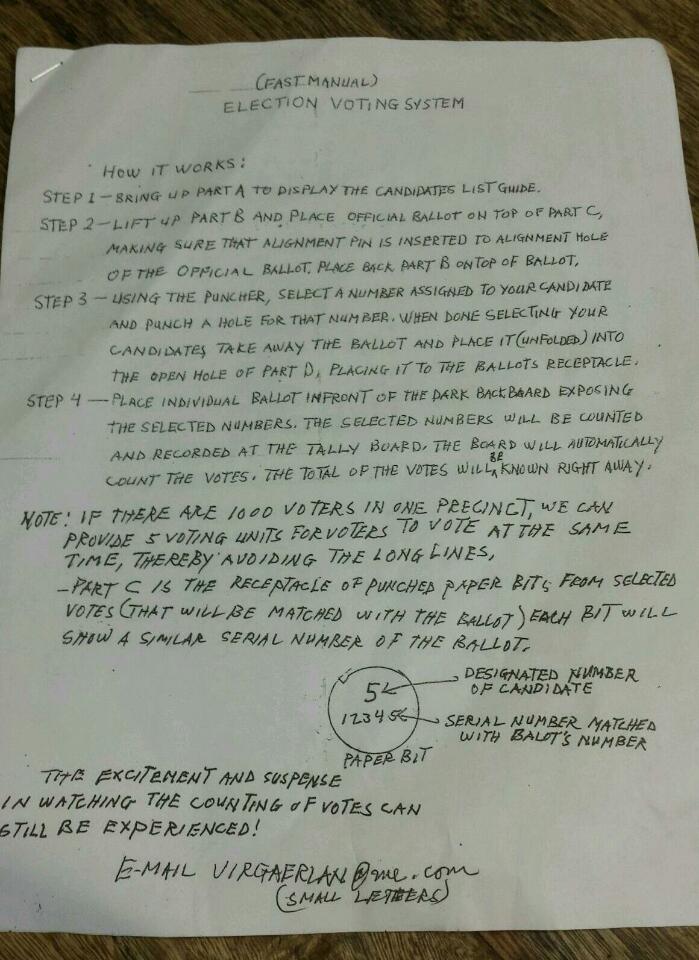 (FAST MANUAL)
ELECTION VOTING SYSTEM
HOW IT WORKS:
STEP 1 – BRING UP PART A TO DISPLAY THE CANDIDATES LIST GUIDE.
STEP 2 – LIFT UP PART B AND PLACE OFFICIAL BALLOT ON TOP OF PART C,
MAKING SURE THAT ALIGNMENT PIN IS INSERTED TO ALIGNMENT HOLE
OF THE OFFICIAL BALLOT. PLACE BACK PART B ON TOP OF BALLOT.
STEP 3 – USING THE PUNCHER, SELECT A NUMBER ASSIGNED TO YOUR CANDIDATE
AND PUNCH A HOLE FOR THAT NUMBER. WHEN DONE SELECTING YOUR
CANDIDATES TAKE AWAY THE BALLOT AND PLACE IT (UNFOLDED) INTO
THE OPEN HOLE OF PART D, PLACING IT TO THE BALLOTS RECEPTACLE.
STEP 4 – PLACE INDIVIDUAL BALLOT INFRONT OF THE DARK BACKBOARD EXPOSING
THE SELECTED NUMBERS. THE SELECTED NUMBERS WILL BE COUNTED
AND RECORDED AT THE TALLY BOARD. THE BOARD WILL AUTOMATICALLY
COUNT THE VOTES. THE TOTAL OF THE VOTES WILL BE KNOWN RIGHT AWAY.
NOTE: IF THERE ARE 1000 VOTERS IN ONE PRECINCT, WE CAN
PROVIDE 5 VOTING UNITS FOR VOTERS TO VOTE AT THE SAME
TIME, THEREBY AVOIDING THE LONG LINES.
– PART C IS THE RECEPTACLE OF PUNCHED PAPER BITS FROM SELECTED
VOTES (THAT WILL BE MATCHED WITH THE BALLOT) EACH BIT WILL
SHOW A SIMILAR SERIAL NUMBER OF THE BALLOT.
5
DESIGNATED NUMBER
OF CANDIDATE
12345
SERIAL NUMBER MATCHED
WITH BALOT'S NUMBER
PAPER BIT
THE EXCITEMENT AND SUSPENSE
IN WATCHING THE COUNTING OF VOTES CAN
STILL BE EXPERIENCED!
E-MAIL VIRGAERLAN@me.com
(SMALL LETTERS)